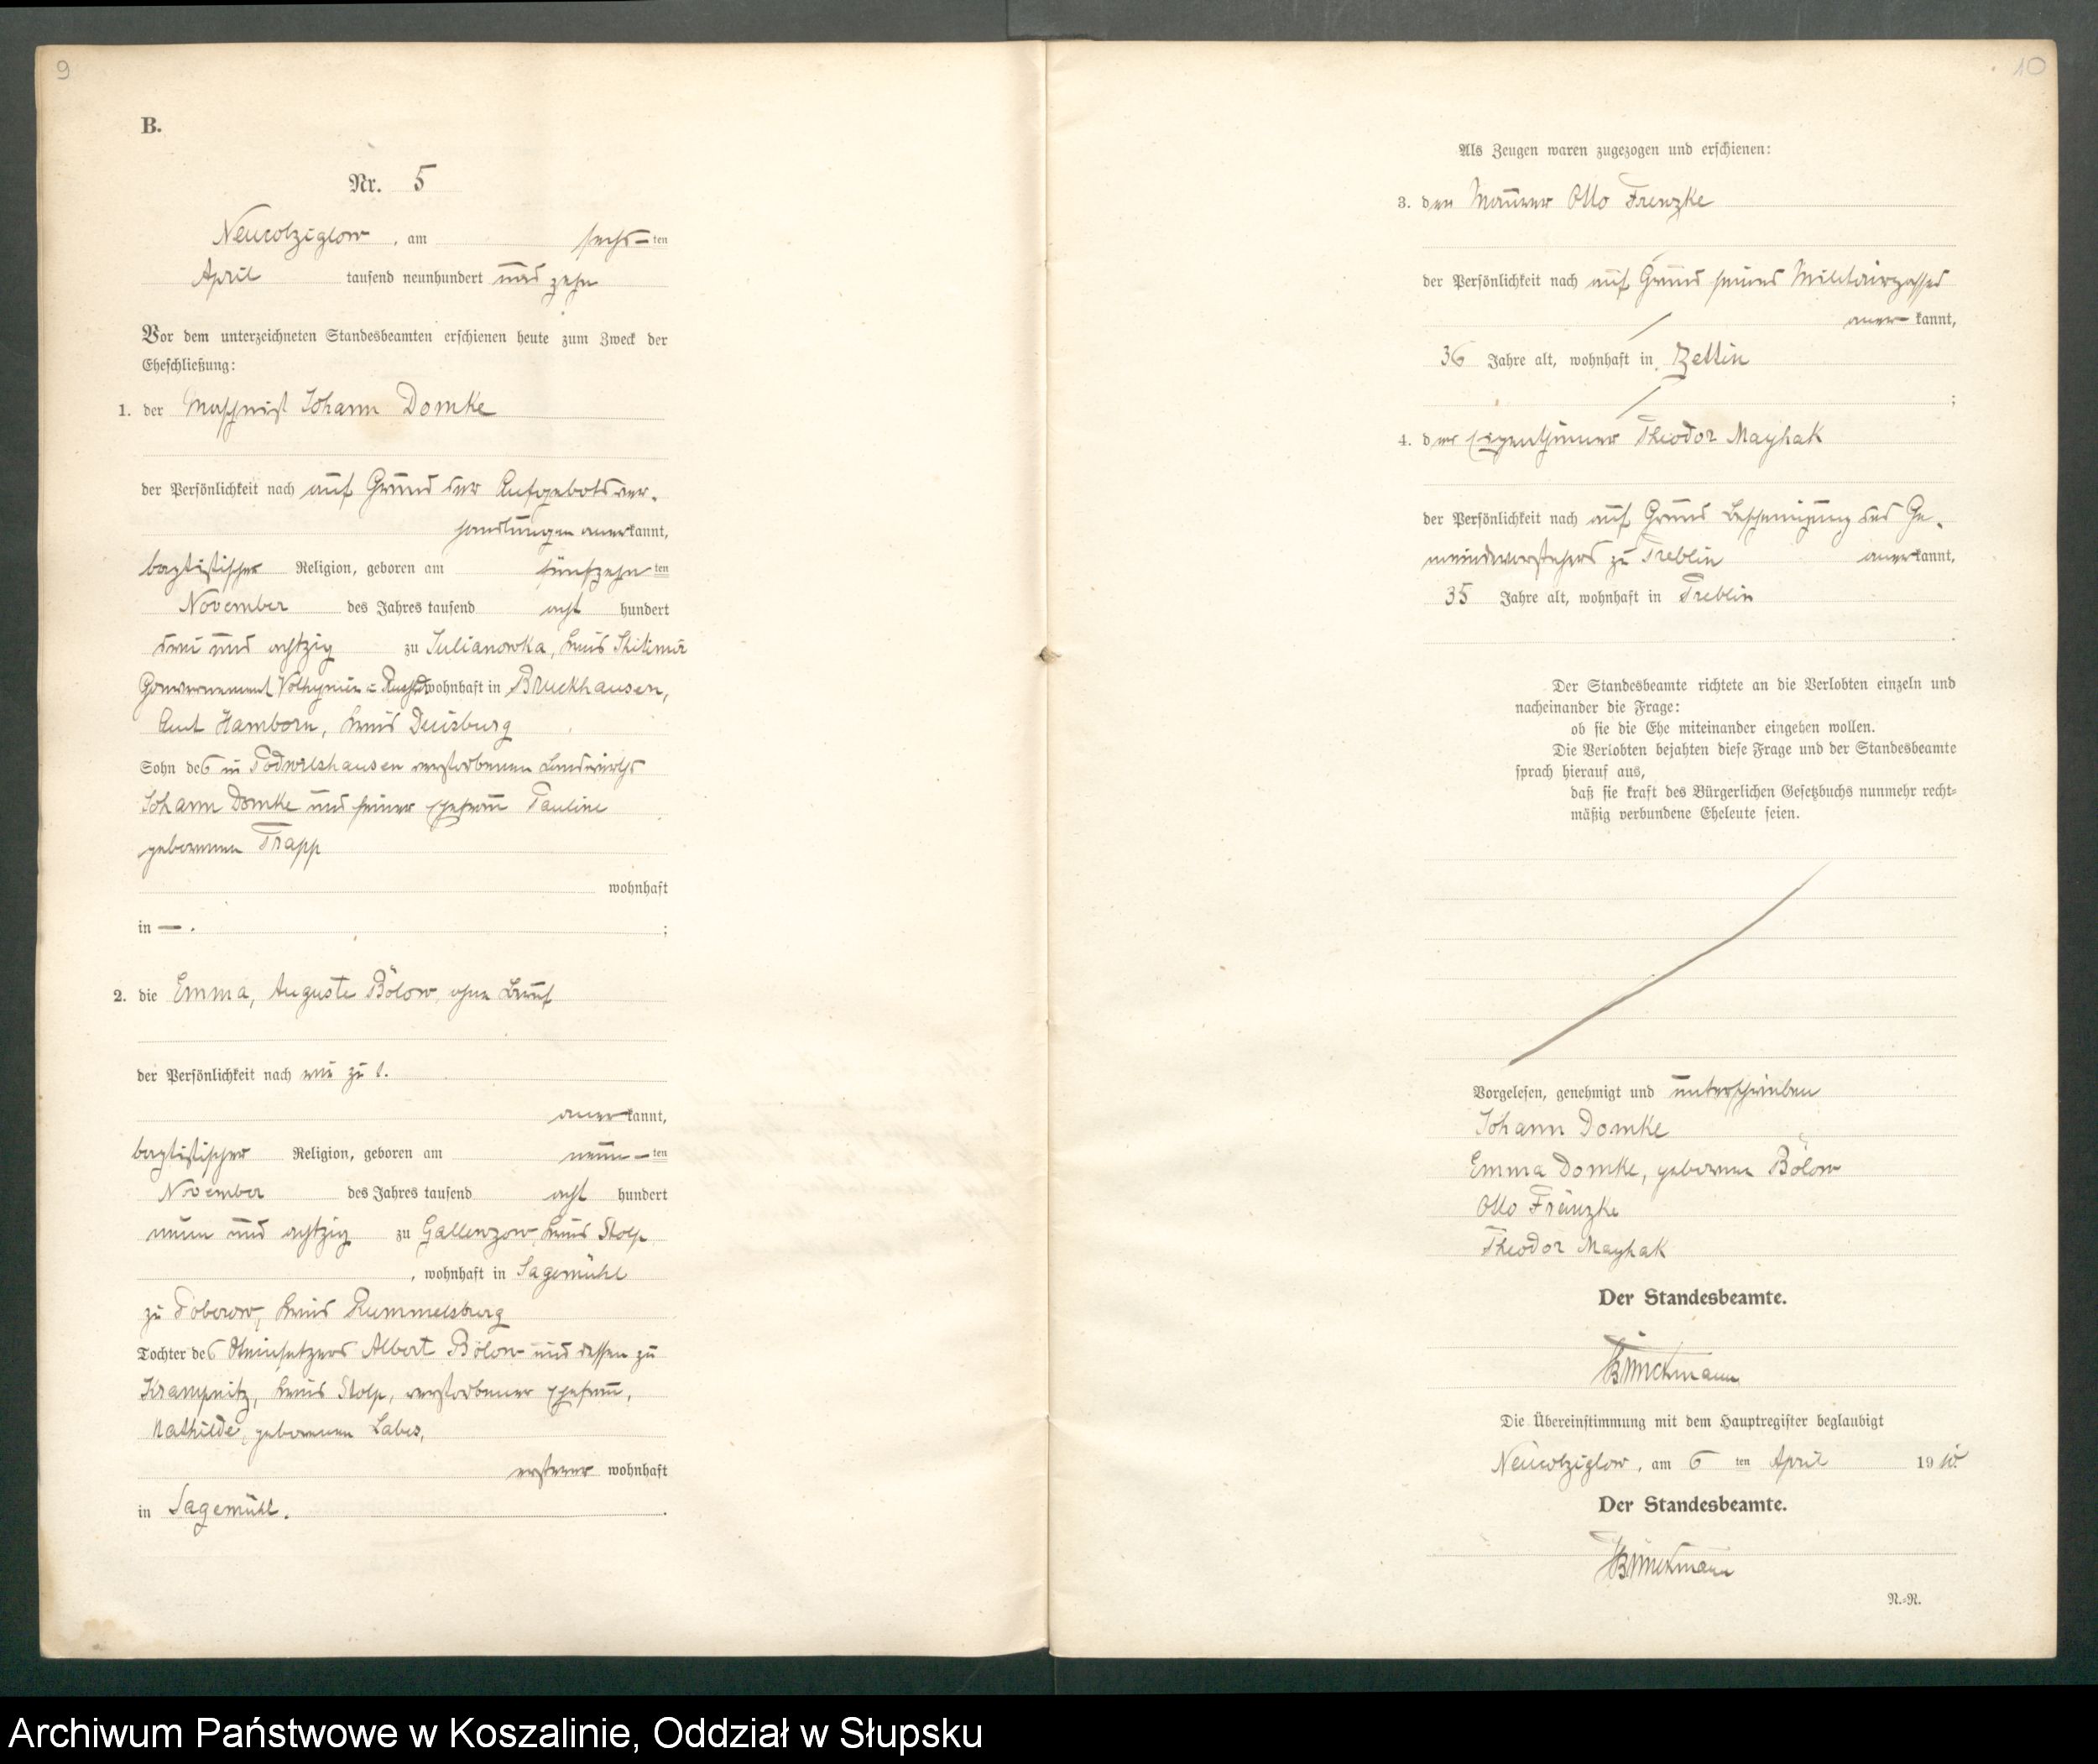 9
B.
Nr. 5
Neucolziglow, am sechs-ten
April tausend neunhundert und zehn
Vor dem unterzeichneten Standesbeamten erschienen heute zum Zweck der
Eheschließung:
1. der Maschinist Johann Domke
der Persönlichkeit nach auf Grund der Aufgebotsver-
handlungen anerkannt,
baptistischer Religion, geboren am fünfzehnten
November des Jahres tausend acht hundert
drei und achtzig zu Julianowka, Kreis Shitimir
Gouvernement Volhynien i. Rußld wohnhaft in Bruckhausen,
Amt Hamborn, Kreis Duisburg
Sohn des in Podwilshausen verstorbenen Landwirths
Johann Domke und seiner Ehefrau Pauline
geborenen Trapp
wohnhaft
in — . ;
2. die Emma, Auguste Bölow, ohne Beruf
der Persönlichkeit nach wie zu 1.
anerkannt,
baptistischer Religion, geboren am neun-ten
November des Jahres tausend acht hundert
neun und achtzig zu Gallenzow, Kreis Stolp
, wohnhaft in Sagemühl
zu Poberow, Kreis Rummelsburg
Tochter des Steinsetzers Albert Bölow und dessen zu
Krampnitz, Kreis Stolp, verstorbener Ehefrau,
Mathilde, geborenen Labes,
ersterer wohnhaft
in Sagemühl.
10
Als Zeugen waren zugezogen und erschienen:
3. der Maurer Otto Frenzke
der Persönlichkeit nach auf Grund seines Militairpasses
anerkannt,
36 Jahre alt, wohnhaft in Zettin
;
4. der Eigenthümer Theodor Mayhak
der Persönlichkeit nach auf Grund Bescheinigung des Ge-
meindevorstehers zu Treblin anerkannt,
35 Jahre alt, wohnhaft in Treblin
Der Standesbeamte richtete an die Verlobten einzeln und
nacheinander die Frage:
ob sie die Ehe miteinander eingehen wollen.
Die Verlobten bejahten diese Frage und der Standesbeamte
sprach hierauf aus,
daß sie kraft des Bürgerlichen Gesetzbuchs nunmehr recht-
mäßig verbundene Eheleute seien.
Vorgelesen, genehmigt und unterschrieben
Johann Domke
Emma Domke, geborene Bölow
Otto Fränzke
Theodor Mayhak
Der Standesbeamte.
Die Übereinstimmung mit dem Hauptregister beglaubigt
Neucolziglow, am 6 ten April 1910
Der Standesbeamte.
N.-R.
Archiwum Państwowe w Koszalinie, Oddział w Słupsku